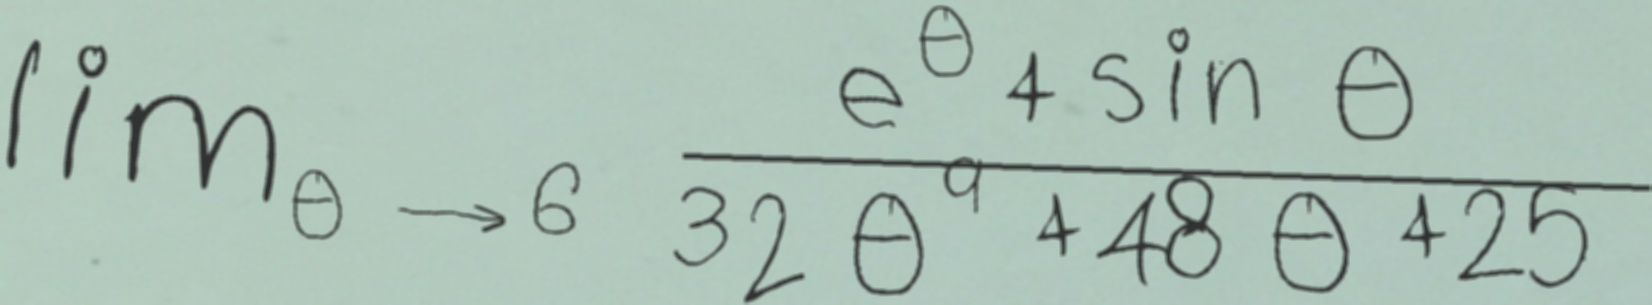 lim_{θ → 6} \frac{e^{θ} + sin θ}{32 θ^{9} + 48 θ + 25}